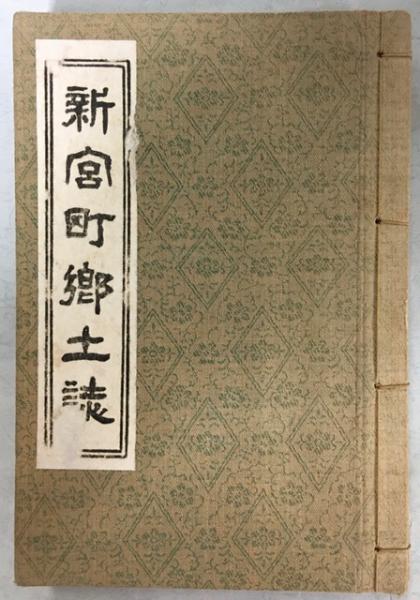 新宮町鄉土誌